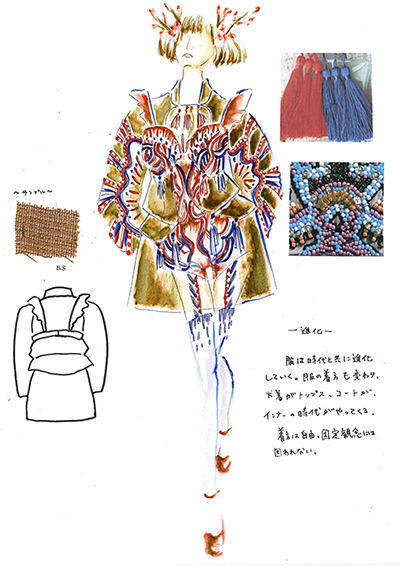 〜サンプル〜
B.S
ー進化ー
服は時代と共に進化
していく。服の着方も変わり、
下着がトップス、コートが、
インナーの時代がやってくる。
着方は自由、固定観念には
囚われない。